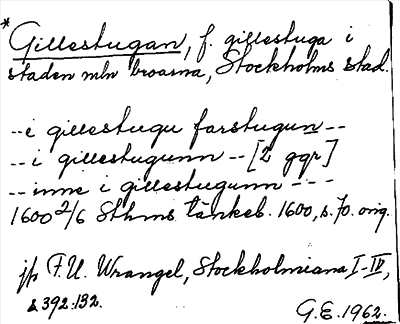 * Gillestugan, f. gillestuga i
staden mln broarna, Stockholms stad.
--i gillestugu farstugun--
--i gillestugunn--[2 ggr]
--inne i gillestugunn---
1600 2/6 Sthms tänkeb. 1600, s. 70. orig.
jfr F.U. Wrangel, Stockholmiana I-IV,
s. 392. 132.
G.E. 1962.